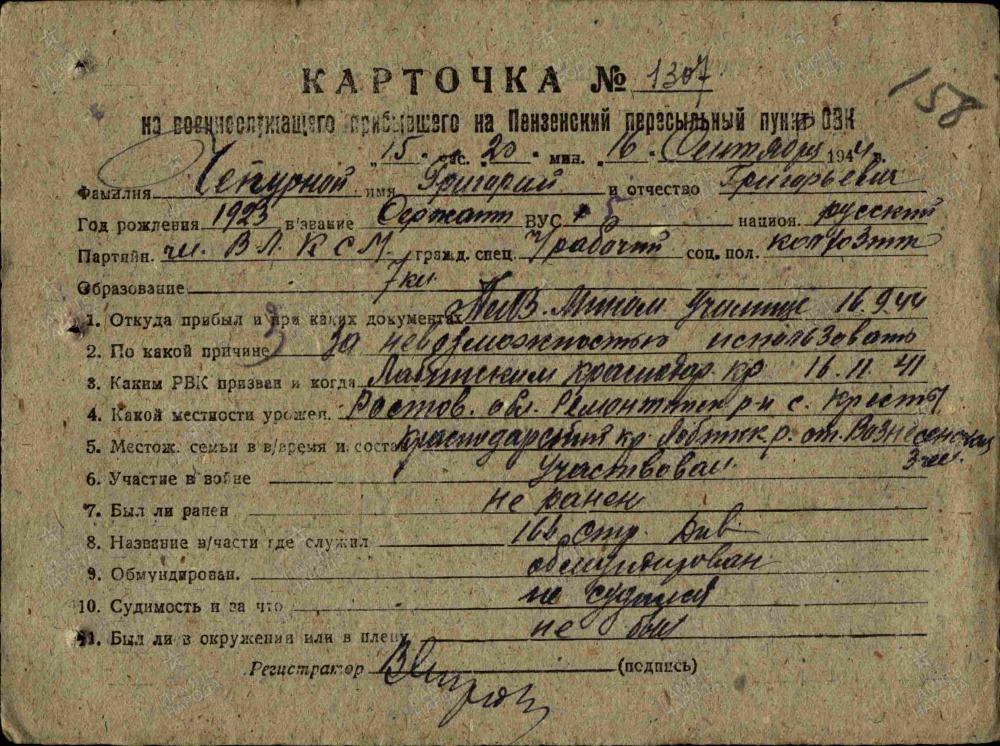 158
КАРТОЧКА № 1307
на военнослужащего прибывшего на Пензенский пересыльный пункт ОВК
„15" час. 20" мин. „16" Сентября 1944 г.
Фамилия Чепурной имя Григорий и отчество Григорьевич
Год рождения 1923 в/звание Сержант ВУС национ. русский
Партийн. чл. ВЛКСМ гражд. спец. Ч/рабочий соц. пол. колхозник
Образование 7 кл
1. Откуда прибыл и при каких документах Мином. Училище 16.9.44
2. По какой причине за невозможностью использовать
3. Каким РВК призван и когда Лабинским краснодар. кр 16.11.41
4. Какой местности урожен. Ростов. обл. Ремонтнен р-н с. Кресты
5. Местож. семьи в в/время и состав Краснодарский кр. Лабинск. р. ст. Вознесенская
3 чел.
6. Участие в войне Участвовал
7. Был ли ранен не ранен
8. Название в/части где служил 166 Стр. див
9. Обмундирован. обмундирован
10. Судимость и за что не судился
11. Был ли в окружении или в плену не был
Регистратор (подпись)